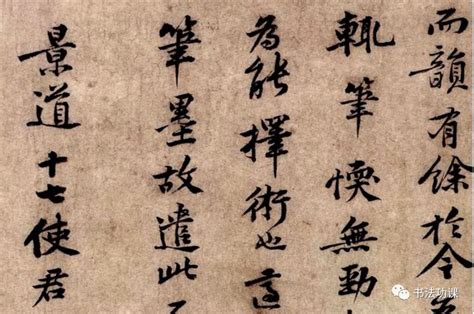 而韻有餘於今
輒筆愞無勁
為能擇術也適
筆墨故遣此
景道十七使君
书法功课